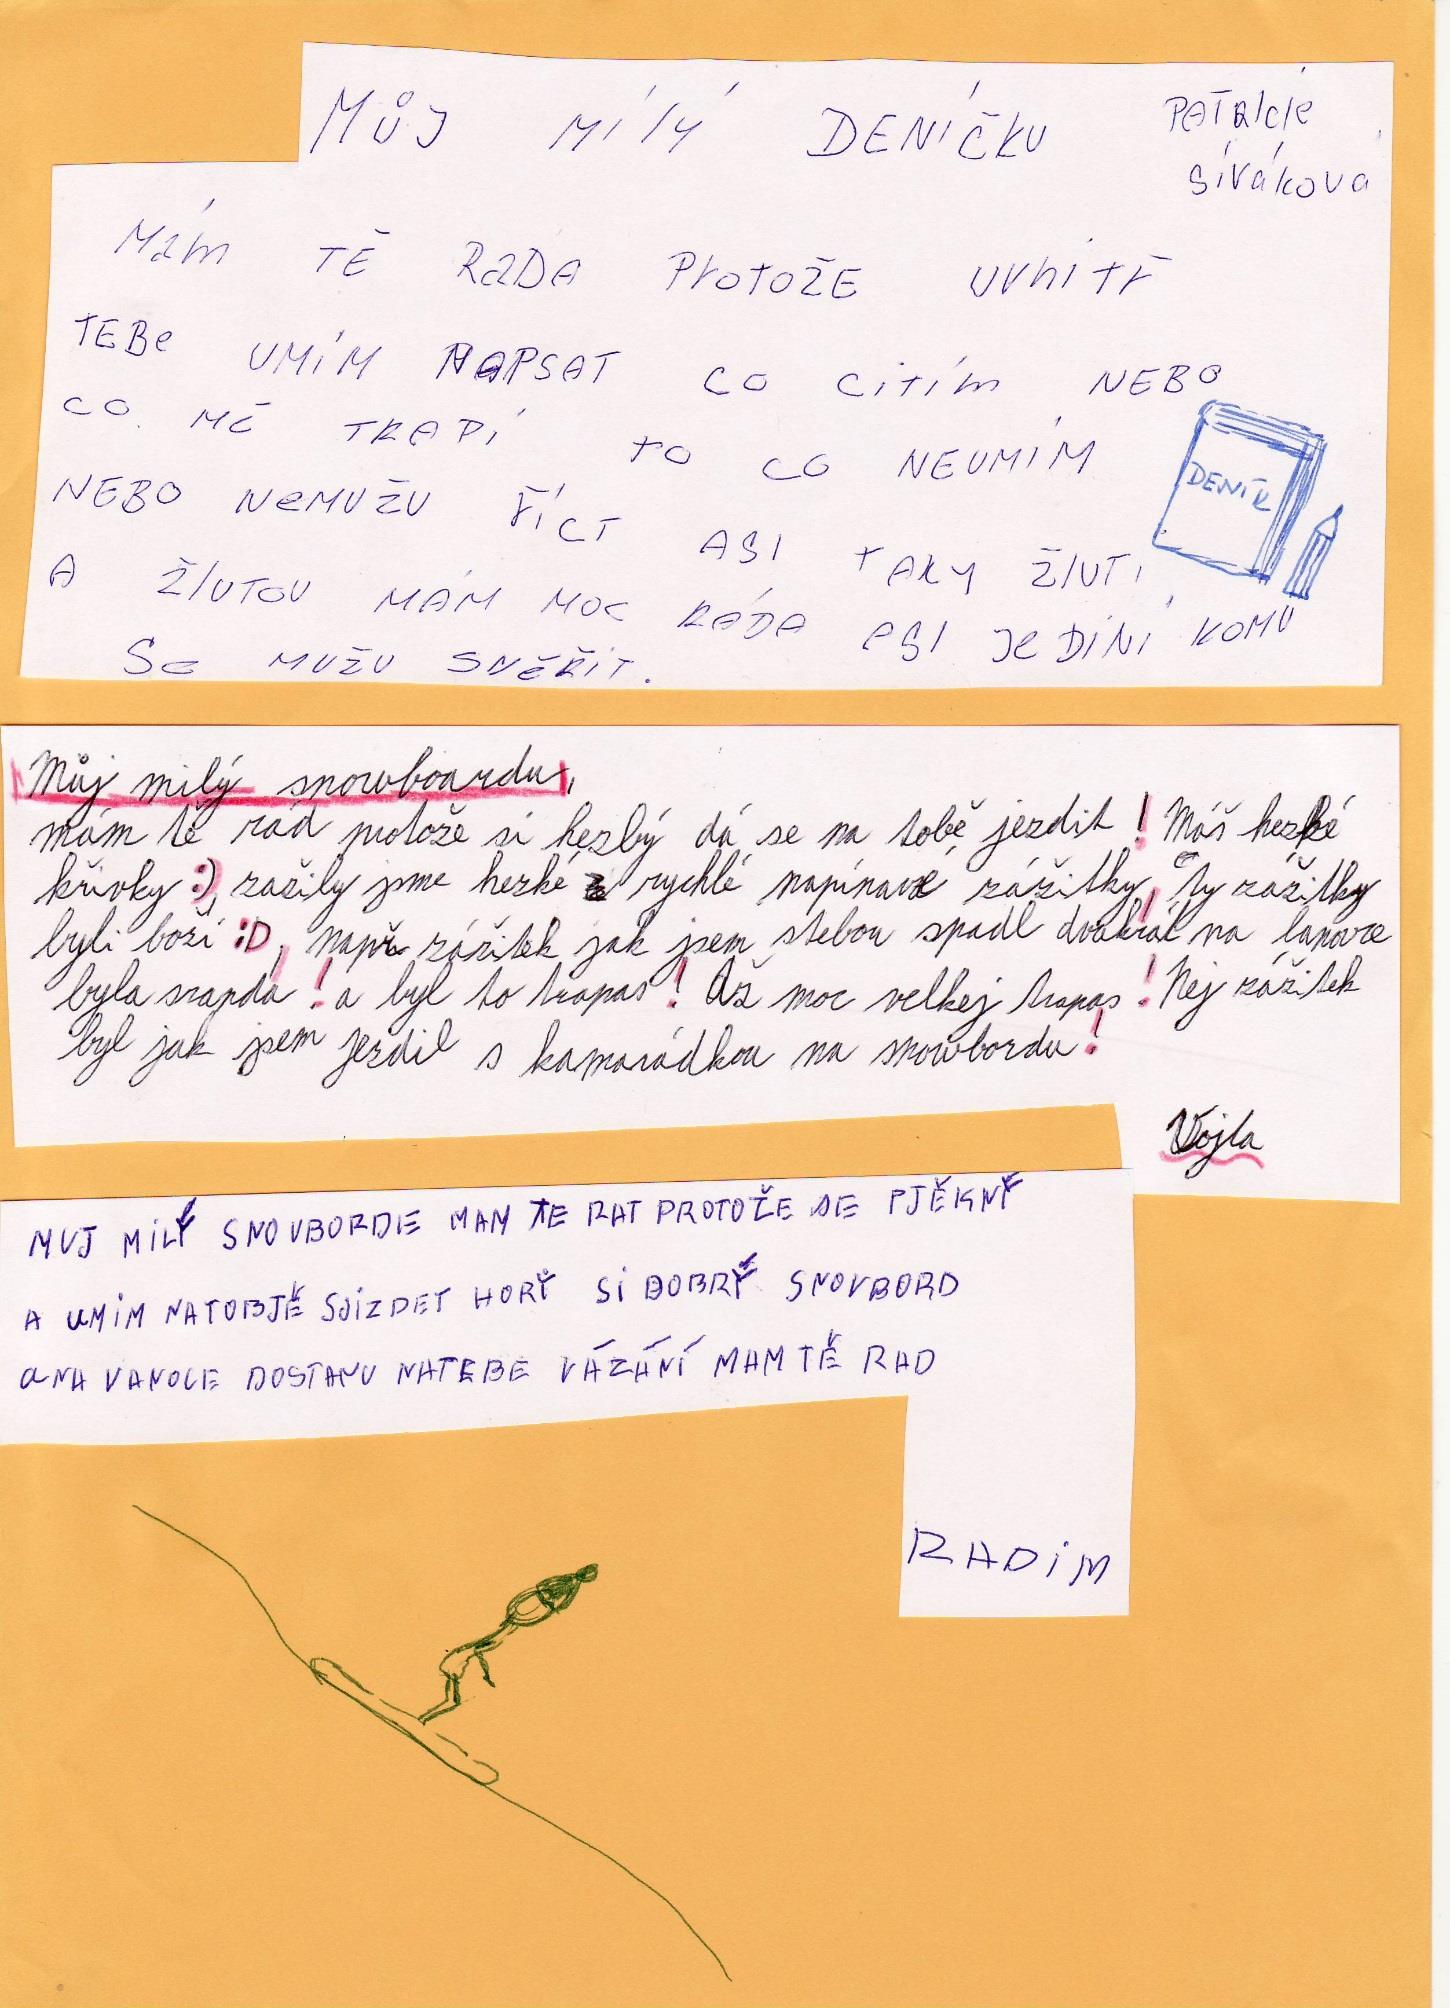 MŮJ MÍLÝ DENÍČKU
PATRICIE
SIVÁKOVA
MÁM TĚ RÁDA PROTOŽE UVNITŘ
TEBE UMÍM NAPSAT CO CITÍM NEBO
CO MĚ TRAPÍ TO CO NEUMÍM
NEBO NEMUŽU ŘÍCT ASI TAKY ŽIVTI
A ŽIVTOU MÁM MOC RÁDA ASI JEDINI KOMU
SE MUŽU SVĚŘIT.
DENÍK
Můj milý snowboardu,
mám tě rád protože si hezký dá se na tobě jezdit! Máš hezké
křivky :), zažily jsme hezké rychlé napínavé zážitky, ty zážitky
byli boží :D, např. zážitek jak jsem stebou spadl dvakrát na lanovce
byla sranda! a byl to trapas! Až moc velkej trapas! Nej zážitek
byl jak jsem jezdil s kamarádkou na snowbordu!
Vojta
MUJ MILÝ SNOVBORDE MAM TE RAT PROTOŽE SE PJĚKNÝ
A UMIM NATOBJĚ SJIZDET HORY SI DOBRÝ SNOVBORD
aNA VANOCE DOSTANU NATEBE VÁZÁNÍ MAM TĚ RAD
RADIM